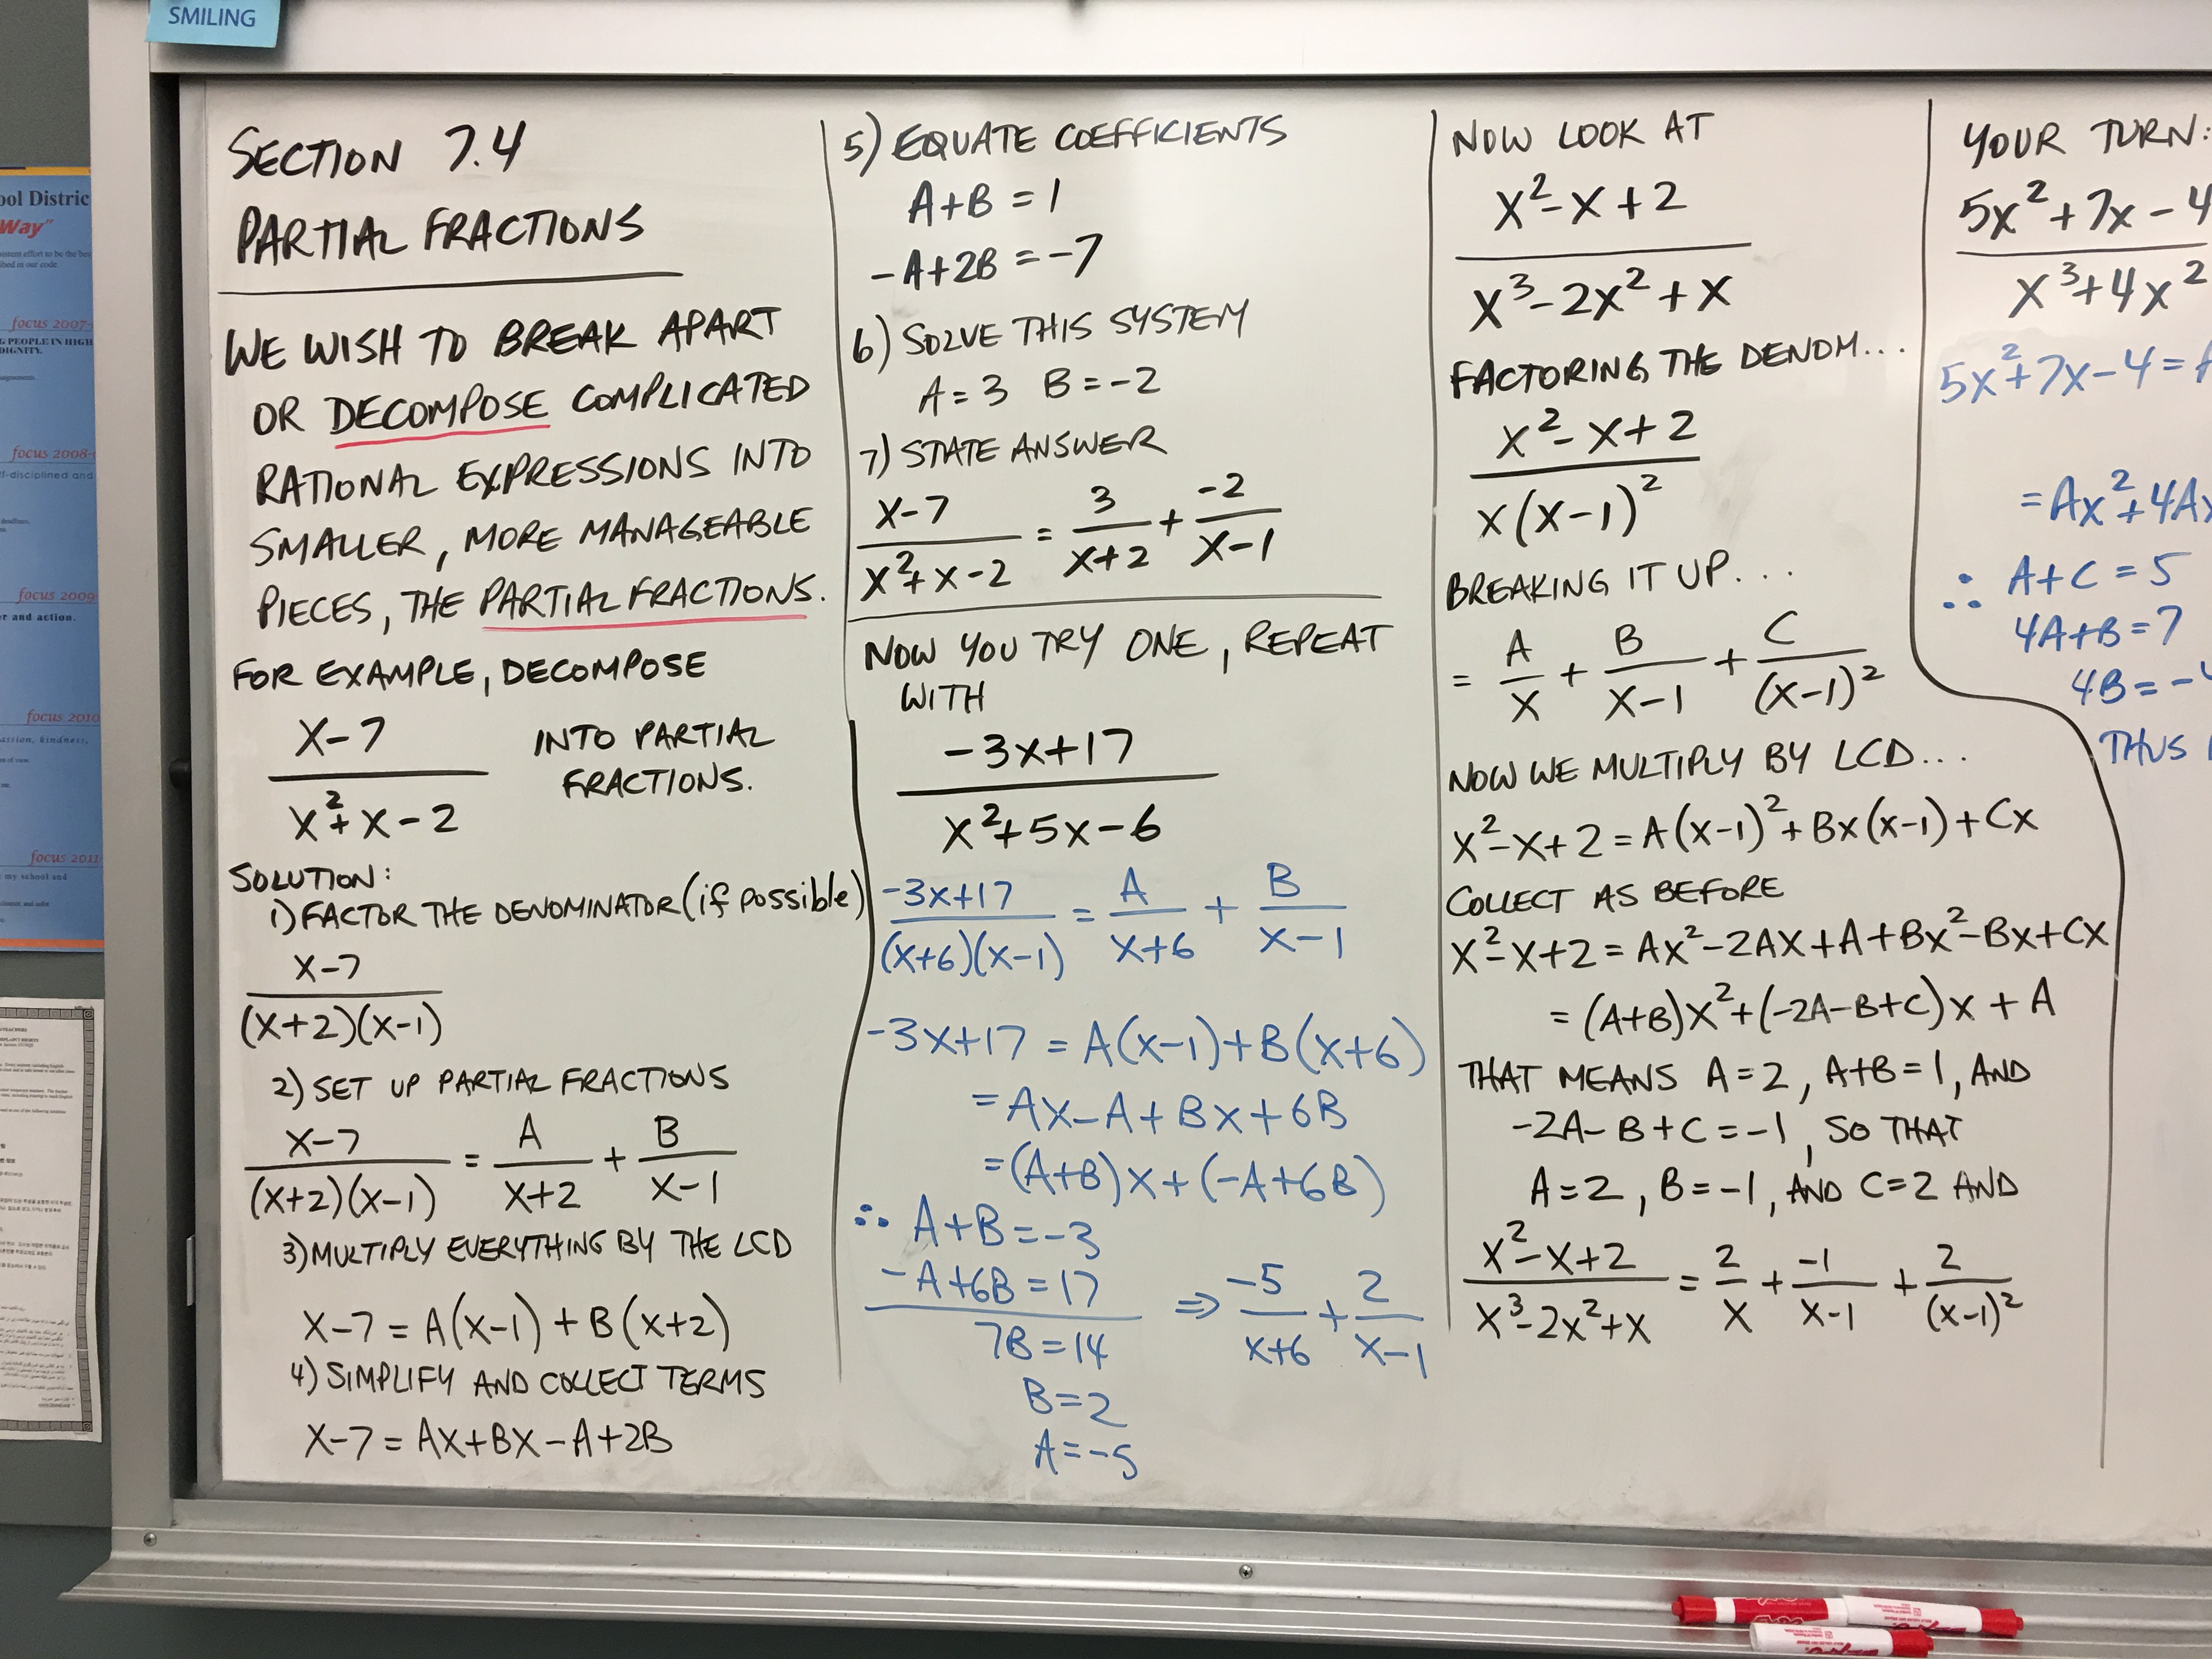 SMILING
ool Distric
Way"
focus 2007-
G PEOPLE IN HIGH
DIGNITY.
focus 2008-
f-disciplined and
focus 2009
r and action.
focus 2010
assion, kindness,
focus 2011
my school and
SECTION 7.4
PARTIAL FRACTIONS
WE WISH TO BREAK APART
OR DECOMPOSE COMPLICATED
RATIONAL EXPRESSIONS INTO
SMALLER, MORE MANAGEABLE
PIECES, THE PARTIAL FRACTIONS.
FOR EXAMPLE, DECOMPOSE
x-7 / x²+x-2 INTO PARTIAL
FRACTIONS.
SOLUTION:
1) FACTOR THE DENOMINATOR (if possible)
x-7 / (x+2)(x-1)
2) SET UP PARTIAL FRACTIONS
x-7 / (x+2)(x-1) = A / x+2 + B / x-1
3) MULTIPLY EVERYTHING BY THE LCD
x-7 = A(x-1) + B(x+2)
4) SIMPLIFY AND COLLECT TERMS
x-7 = Ax+Bx-A+2B
5) EQUATE COEFFICIENTS
A+B = 1
-A+2B = -7
6) SOLVE THIS SYSTEM
A=3 B=-2
7) STATE ANSWER
x-7 / x²+x-2 = 3 / x+2 + -2 / x-1
NOW YOU TRY ONE, REPEAT
WITH
-3x+17 / x²+5x-6
-3x+17 / (x+6)(x-1) = A / x+6 + B / x-1
-3x+17 = A(x-1)+B(x+6)
= Ax-A+Bx+6B
=(A+B)x+(-A+6B)
∴ A+B=-3
-A+6B=17
7B=14
B=2
A=-5
⇒ -5 / x+6 + 2 / x-1
NOW LOOK AT
x²-x+2 / x³-2x²+x
FACTORING THE DENOM...
x²-x+2 / x(x-1)²
BREAKING IT UP...
= A / x + B / x-1 + C / (x-1)²
NOW WE MULTIPLY BY LCD...
x²-x+2 = A(x-1)²+Bx(x-1)+Cx
COLLECT AS BEFORE
x²-x+2 = Ax²-2Ax+A+Bx²-Bx+Cx
= (A+B)x²+(-2A-B+C)x + A
THAT MEANS A=2, A+B=1, AND
-2A-B+C=-1, SO THAT
A=2, B=-1, AND C=2 AND
x²-x+2 / x³-2x²+x = 2 / x + -1 / x-1 + 2 / (x-1)²
YOUR TURN:
5x²+7x-4 / x³+4x²
5x²+7x-4 =
= Ax²+4Ax
∴ A+C=5
4A+B=7
4B=-4
THUS